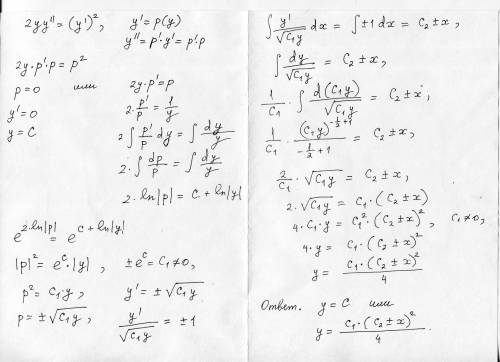 2yy'' = (y')²,   y' = p(y)
y'' = p'·y' = p'·p
2y·p'·p = p²
p = 0   или   2y·p' = p
y' = 0   2·p'/p = 1/y
y = C   2∫ p'/p dy = ∫ dy/y
2·∫ dp/p = ∫ dy/y
2·ln|p| = C + ln|y|
e^(2·ln|p|) = e^(C + ln|y|)
|p|² = e^c·|y|,   ±e^c = C₁ ≠ 0,
p² = C₁·y,   y' = ±√(C₁y)
p = ±√(C₁y),   y'/√(C₁y) = ±1
∫ y'/√(C₁y) dx = ∫ ±1 dx = C₂ ± x,
∫ dy/√(C₁y) = C₂ ± x,
1/C₁ · ∫ d(C₁y)/√(C₁y) = C₂ ± x,
1/C₁ · (C₁y)^(-1/2+1)/(-1/2+1) = C₂ ± x,
2/C₁ · √(C₁y) = C₂ ± x,
2·√(C₁y) = C₁·(C₂ ± x)
4·C₁·y = C₁²·(C₂ ± x)²,   C₁ ≠ 0,
4·y = C₁·(C₂ ± x)²
y = C₁·(C₂ ± x)²/4
Ответ.   y = C   или
y = C₁·(C₂ ± x)²/4.